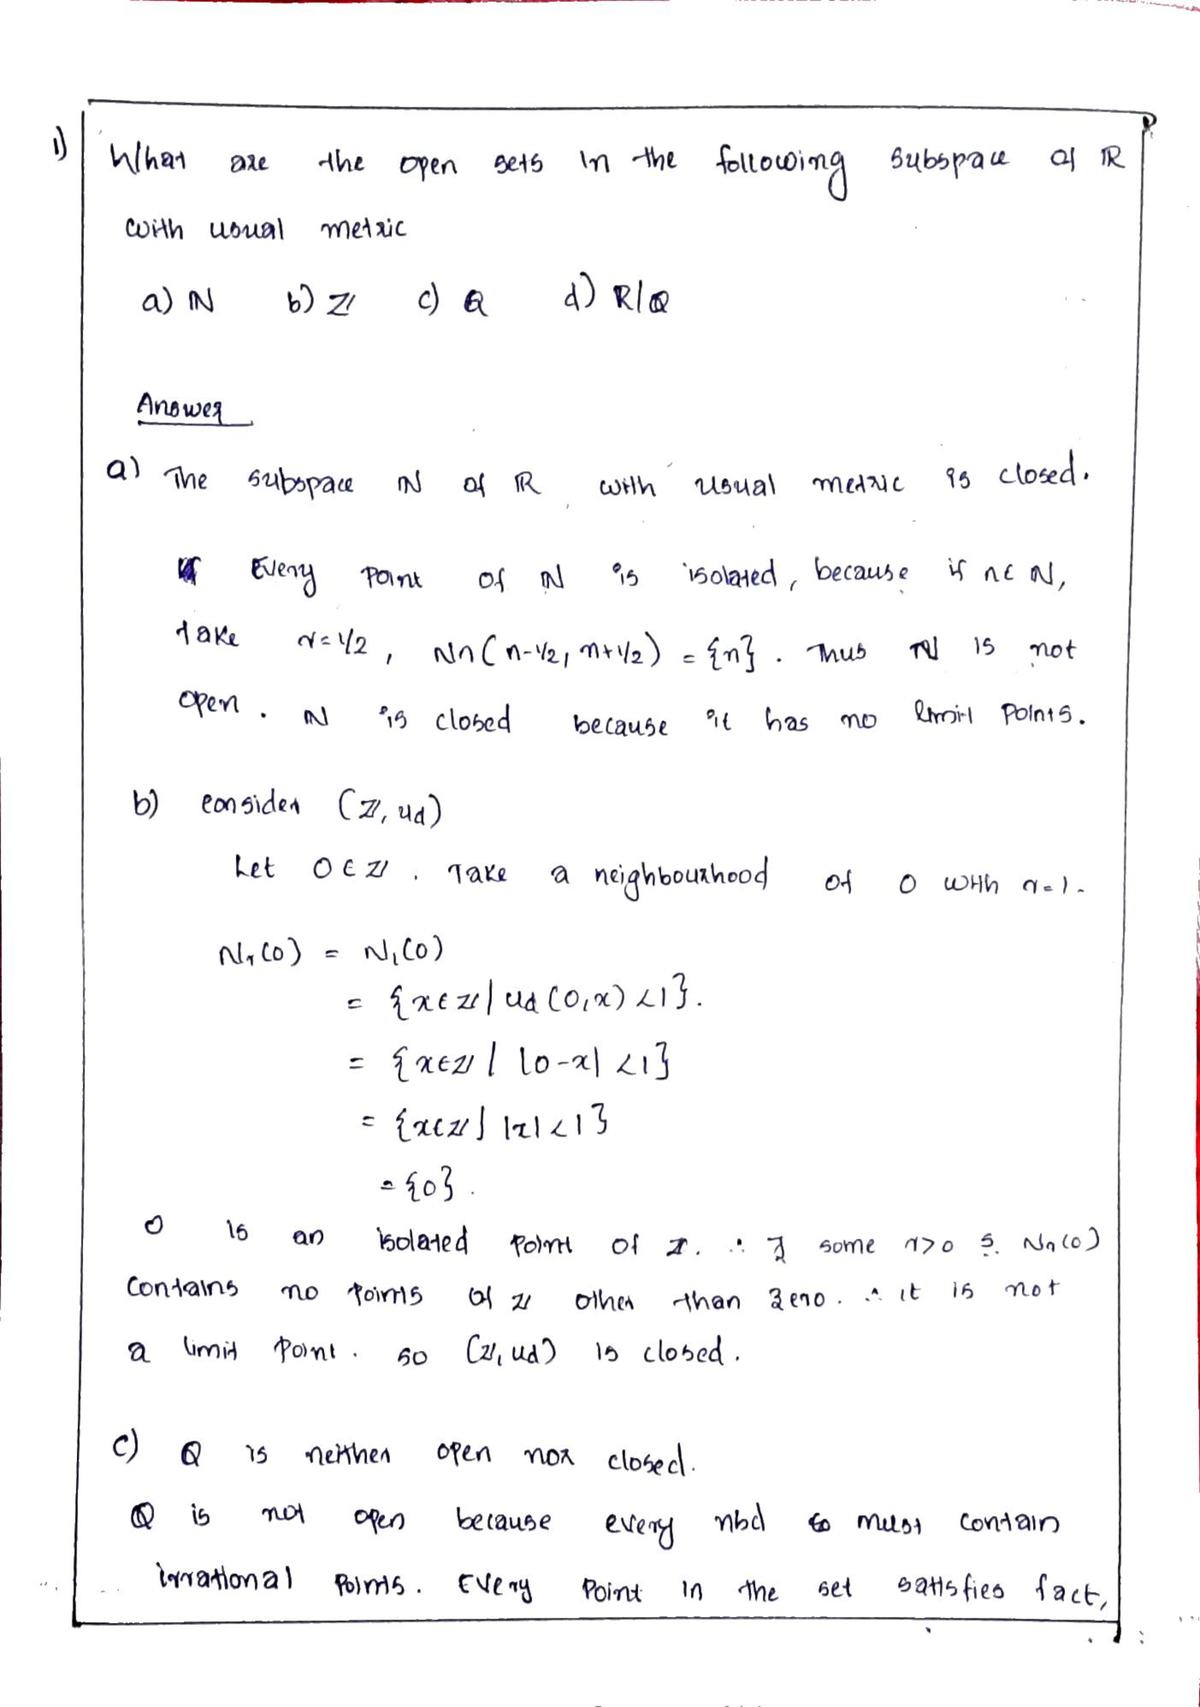 1) What are the open sets in the following subspace of ℝ
with usual metric
a) ℕ b) ℤ c) ℚ d) ℝ|ℚ
Answer
a) The subspace ℕ of ℝ with usual metric is closed.
Every point of ℕ is isolated, because if n∈ℕ,
take r=1/2, ℕ∩(n-1/2, n+1/2) = {n}. Thus ℕ is not
open. ℕ is closed because it has no limit points.
b) consider (ℤ, ud)
Let 0∈ℤ. Take a neighbourhood of 0 with r=1.
Nr(0) = N1(0)
= {x∈ℤ| ud(0,x) <1}.
= {x∈ℤ | |0-x| <1}
= {x∈ℤ| |x|<1}
= {0}.
0 is an isolated point of ℤ. ∴ ∃ some r>0 s. Nr(0)
contains no points of ℤ other than zero. ∴ it is not
a limit point. so (ℤ, ud) is closed.
c) ℚ is neither open nor closed.
ℚ is not open because every nbd must contain
irrational points. Every point in the set satisfies fact,